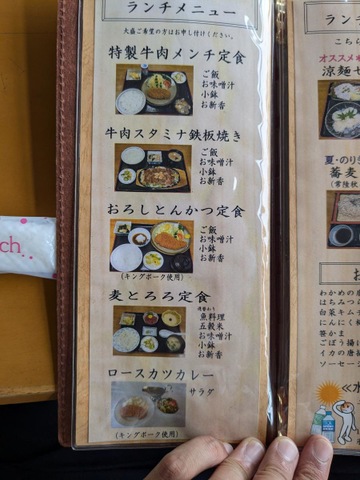 ランチメニュー
大盛ご希望の方はお申し付けください。
特製牛肉メンチ定食
ご飯
お味噌汁
小鉢
お新香
牛肉スタミナ鉄板焼き
ご飯
お味噌汁
小鉢
お新香
おろしとんかつ定食
ご飯
お味噌汁
小鉢
お新香
(キングポーク使用)
麦とろろ定食
魚料理
五穀米
お味噌汁
小鉢
お新香
ロースカツカレー
サラダ
(キングポーク使用)
ch
ラン
こちら
オススメ
涼麺セ
夏・のり
蕎麦
(常陸秋
お
わかめの
はちみつ
白菜キム
にんにく
笹かま
ごぼう揚げ
イカの唐
ソーセー
≪水